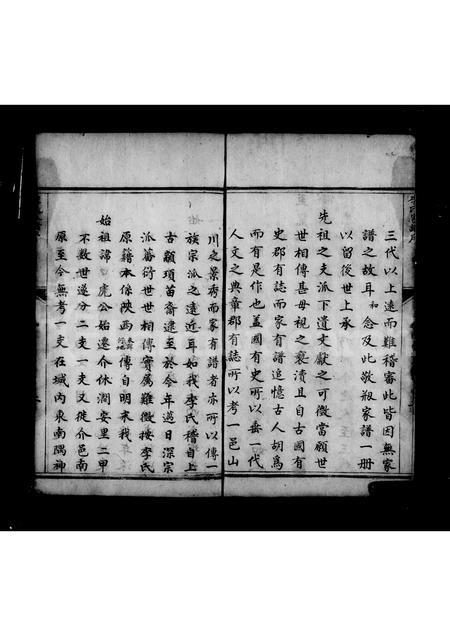 三代以上遠而難稽審此皆因無家
譜之故耳和念及此敬叙家譜一册
以留後世上承
先祖之支派下遺文獻之可徵當願世
世相傳甚毋視之褻瀆且自古國有
史郡有誌而家有譜追憶古人胡為
而有是作也蓋國有史所以垂一代
人文之典章郡有誌所以考一邑山
川之景秀而家有譜者亦所以傳一
族宗派之遠近耳如我李氏稽自上
古顓頊苗裔逮至於今年邁日深宗
派蕃衍世世相傳實屬難徵按李氏
原籍本係陝西傳自明末我
始祖諱虎公始遷介休潤安里二甲
不數世遂分二支一支又徙介邑南
原至今無考一支在城內東南隅神